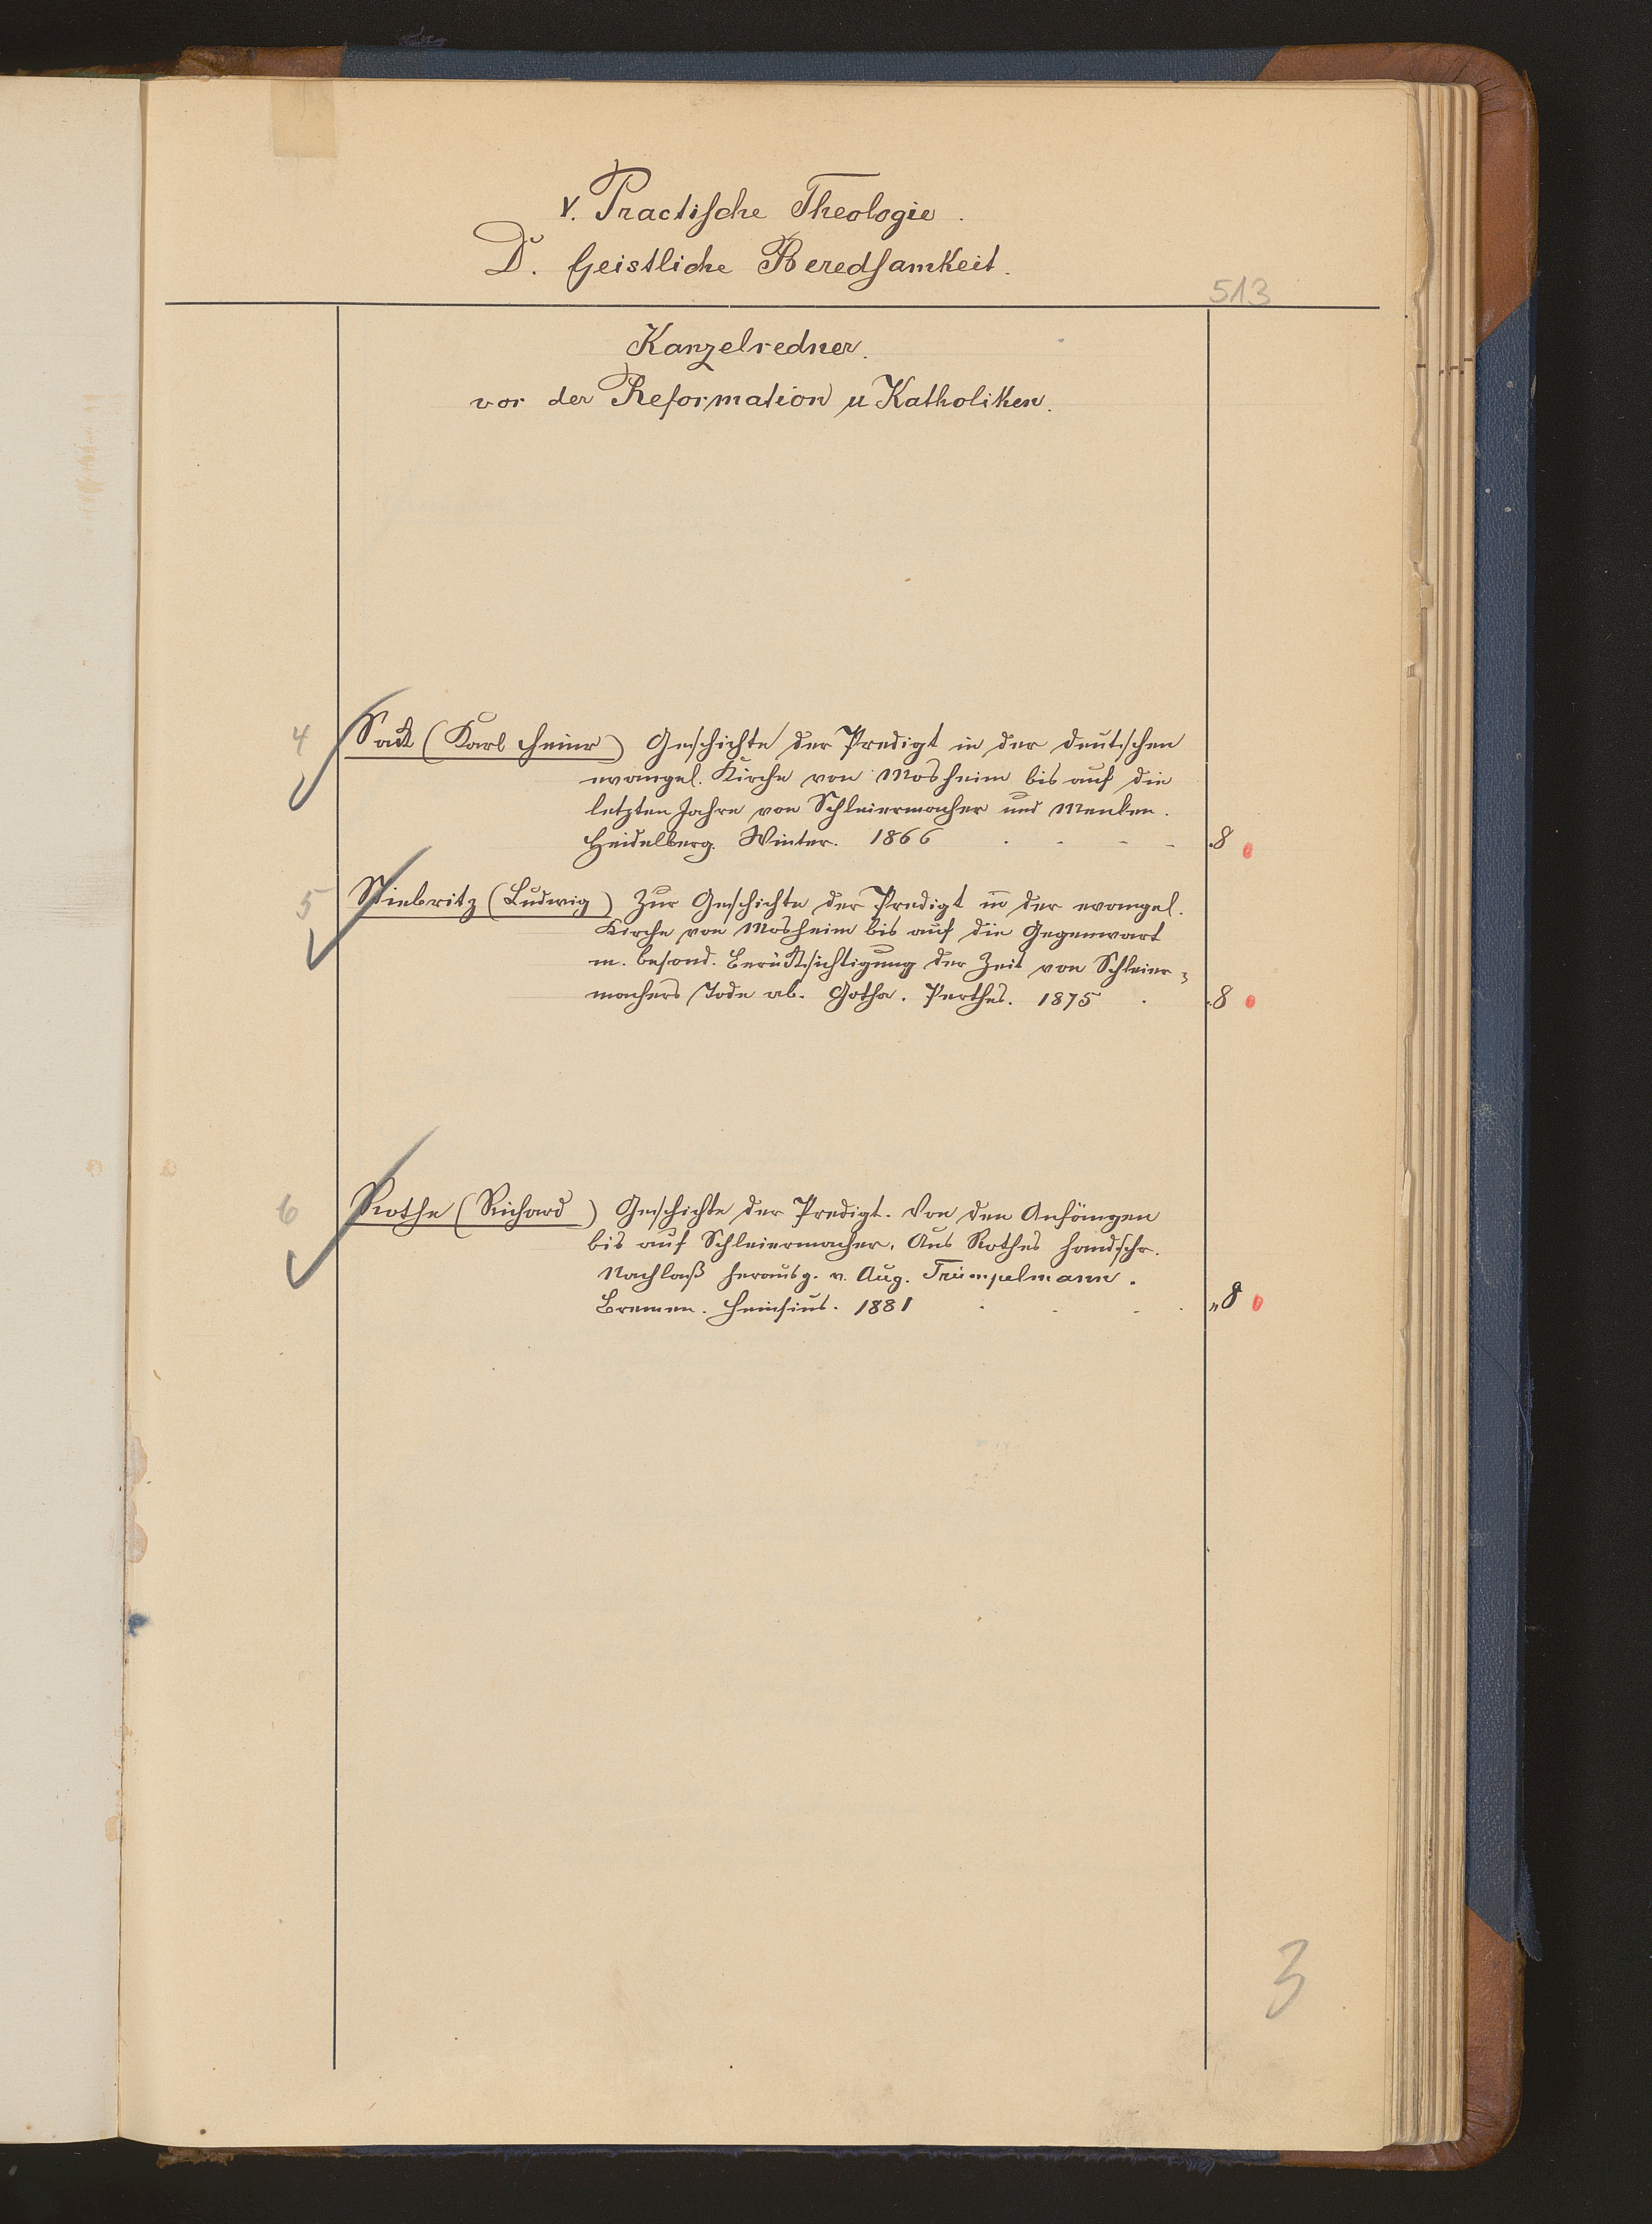 V. Practische Theologie.
D. Geistliche Beredsamkeit.
513
Kanzelredner.
vor der Reformation u Katholiken.
4 Sack (Karl Heinr) Geschichte der Predigt in der deutschen
evangel. Kirche von Mosheim bis auf die
letzten Jahre von Schleiermacher und Menken.
Heidelberg. Winter. 1866 . - - - . 8
5 Stiebritz (Ludwig) Zur Geschichte der Predigt in der evangel.
Kirche von Mosheim bis auf die Gegenwart
m. besond. Berücksichtigung der Zeit von Schleier=
machers Tode ab. Gotha. Perthes. 1875 . . 8
6 Rothe (Richard) Geschichte der Predigt. Von den Anfängen
bis auf Schleiermacher. Aus Rothes handschr.
Nachlaß herausg. v. Aug. Trümpelmann.
Bremen. Heinsius. 1881 . . . . „ 8
3